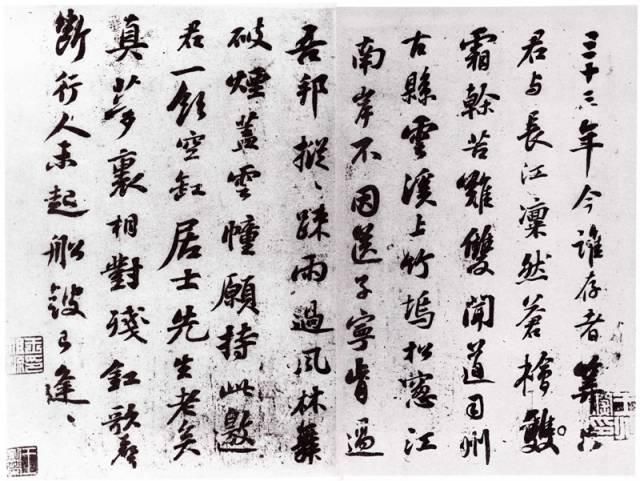 三十三年今誰存者算只
君与長江凜然蒼檜雙
霜幹苦難雙聞道司州
古縣雲溪上竹塢松窓江
南岸不因送子寧肯過
吾邦摐〻踈雨過風林舞
破煙蓋雲幢願持此邀
君一飲空缸居士先生老矣
真夢裏相對殘釭歌聲
斷行人未起船鼓已逢〻